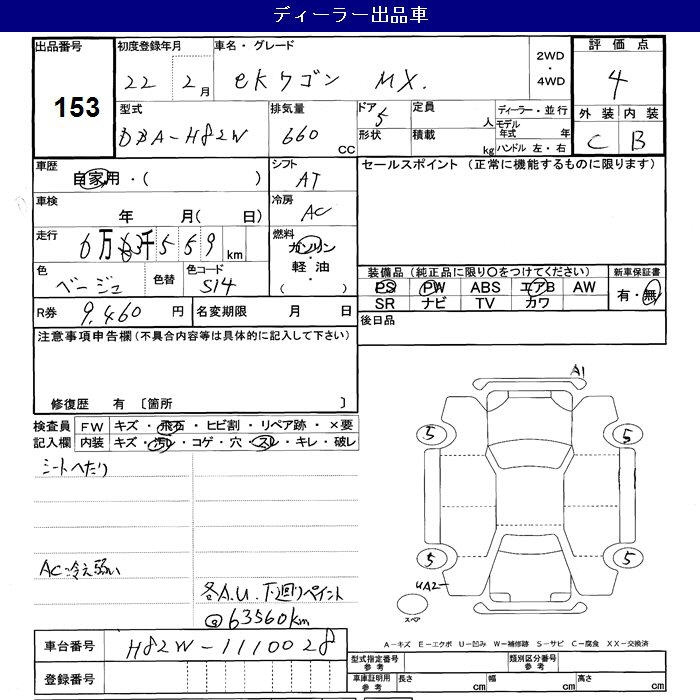 ディーラー出品車
出品番号 153
初度登録年月 22 2月
車名・グレード eKワゴン MX.
2WD・4WD
評価点 4
外装 C 内装 B
型式 DBA-H82W
排気量 660 CC
ドア 5
形状
定員 人
積載 kg
ディーラー・並行
モデル年式 年
ハンドル 左・右
車歴 自家用・( )
シフト AT
セールスポイント(正常に機能するものに限ります)
車検 年 月( 日)
冷房 AC
走行 6万3千559km
燃料 ガソリン・軽油・( )
色 ベージュ 色替 色コード S14
装備品(純正品に限り〇をつけてください)
PS PW ABS エアB AW
SR ナビ TV カワ
新車保証書 有・無
R券 9,460円 名変期限 月 日
後日品
注意事項申告欄(不具合内容等は具体的に記入して下さい)
修復歴 有〔箇所 〕
検査員記入欄
FW キズ・飛石・ヒビ割・リペア跡・×要
内装 キズ・汚レ・コゲ・穴・スレ・キレ・破レ
シートへたり
AC冷え弱い
各A.U.下廻りペイント
@63560km
A1
5 5
5 5
UA2
スペア
A-キズ E-エクボ U-凹み W-補修跡 S-サビ C-腐食 XX-交換済
車台番号 H82W-1110028
登録番号
型式指定番号 参考 類別区分番号 参考
車庫証明用 参考 長さ cm 幅 cm 高さ cm